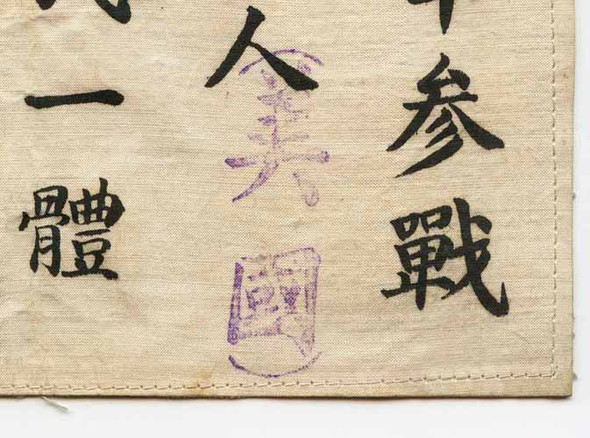 参戰
人（美國）
一體